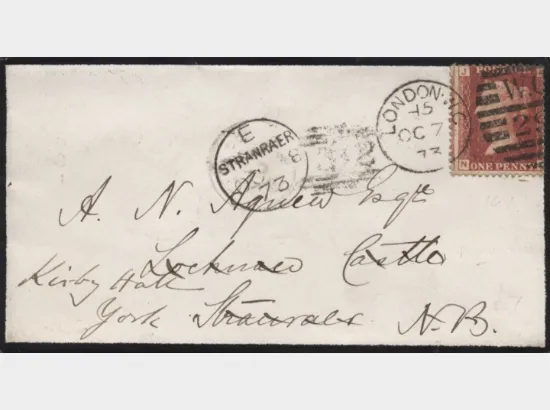 J
POSTAGE
LONDON.W.C
15
OC 7
73
W.C
N
ONE PENNY
E
STRANRAER
8
73
A. N. Agnew Esqr
Lochnaw Castle
Kirby Hall
York Stranraer N.B.